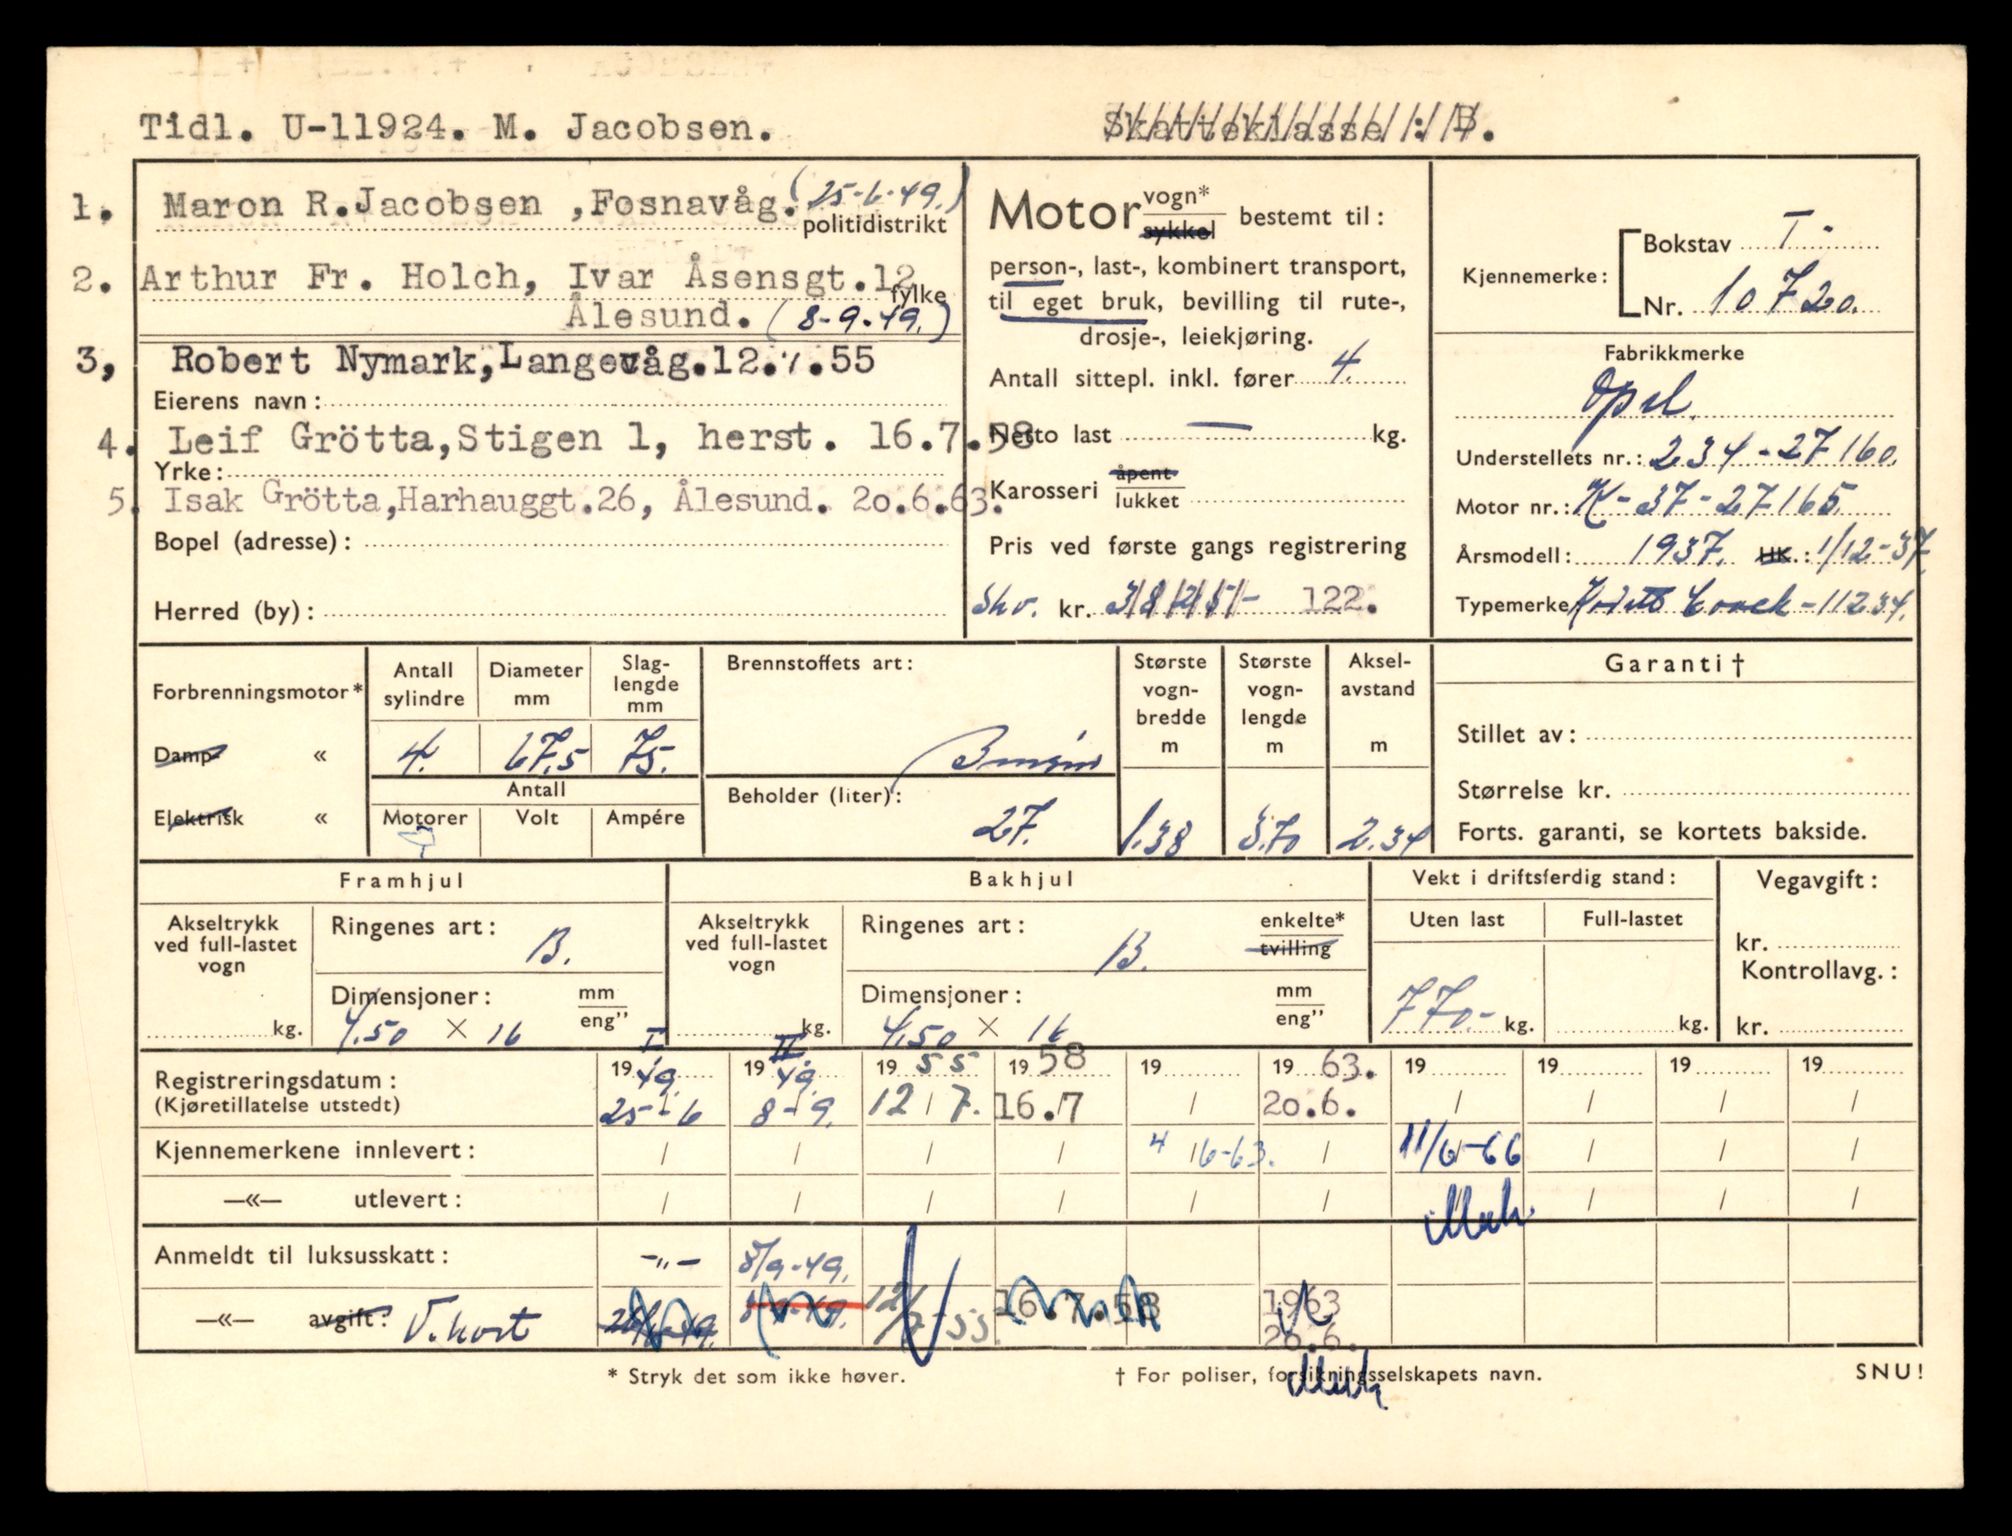 Tidl. U-11924. M. Jacobsen.
Skatteklasse : B.
1. Maron R.Jacobsen ,Fosnavåg. (25-6-49.)
politidistrikt
2. Arthur Fr. Holch, Ivar Åsensgt.12
fylke
Ålesund. (8-9-49.)
3, Robert Nymark,Langevåg.12.7.55
Eierens navn :
4. Leif Grötta,Stigen 1, herst. 16.7.58
Yrke:
5. Isak Grötta,Harhauggt.26, Ålesund. 20.6.63.
Bopel (adresse) :
Herred (by) :
Motor vogn* sykkel bestemt til :
person-, last-, kombinert transport,
til eget bruk, bevilling til rute-,
drosje-, leiekjøring.
Antall sittepl. inkl. fører 4.
Netto last — kg.
Karosseri åpent lukket
Pris ved første gangs registrering
Shv. kr. 3825/- 122.
Kjennemerke : Bokstav T-
Nr. 10720.
Fabrikkmerke
Opel.
Understellets nr. : 234-27160.
Motor nr. : K-37-27165.
Årsmodell : 1937. HK. : 1/12-37.
Typemerke Coach - 11234.
Forbrenningsmotor*
Damp «
Elektrisk «
Antall sylindre
4.
Diameter mm
67,5
Slag-lengde mm
75.
Antall
Motorer Volt Ampére
Brennstoffets art :
Bensin
Beholder (liter) :
27.
Største vogn-bredde m
1.38
Største vogn-lengde m
3.70
Aksel-avstand m
2.34
Garanti †
Stillet av :
Størrelse kr.
Forts. garanti, se kortets bakside.
Framhjul
Akseltrykk ved full-lastet vogn
kg.
Ringenes art :
B.
Dimensjoner : mm eng”
4.50 × 16
Bakhjul
Akseltrykk ved full-lastet vogn
kg.
Ringenes art : enkelte* tvilling
B.
Dimensjoner : mm eng”
4.50 × 16
Vekt i driftsferdig stand :
Uten last Full-lastet
770.- kg. kg.
Vegavgift :
kr.
Kontrollavg. :
kr.
I II
Registreringsdatum : 19 49. 19 49. 19 55 19 58 19 19 63. 19 19 19 19
(Kjøretillatelse utstedt) 25-6 8-9. 12/7. 16.7 / 20.6. / / / /
Kjennemerkene innlevert : / / / / 4/6-63. / 11/6-66 / / /
—«— utlevert : / / / / / / / / /
Anmeldt til luksusskatt : -„- 8/9-49.
—«— avgift : V.kort 8-9-49. 12/7-55. 16.7.58 1963
20.6.
* Stryk det som ikke høver.
† For poliser, forsikningsselskapets navn.
SNU!